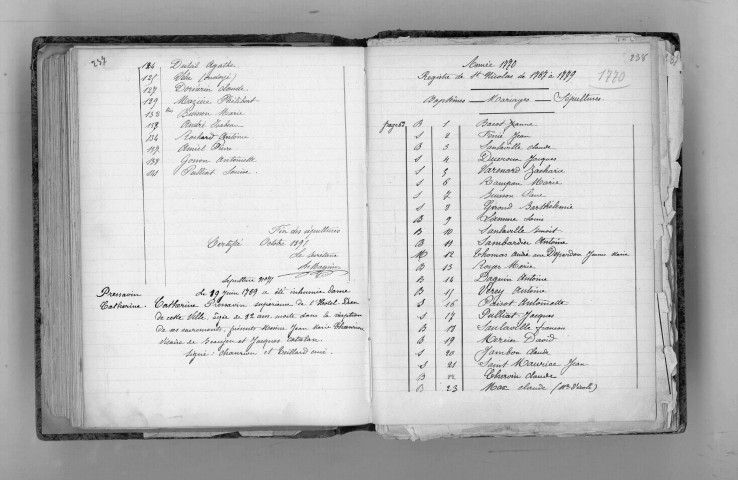 237
124 Dutel Agathe
125 Vélu
127 Dorierin claude
129 Mazuire Philibert
132 bis Buisson Marie
153 André
134 Rochard Antoine
137 Amiel Pierre
139 Gonon Antoinette
141 Pulliat Louise.
Fin des sépultures
Certifié Octobre 1891
Le Secretaire
Sépulture
Pressavin Catherine.
le 29 juin 1769 a été inhumée Dame
Catherine Pressavin supérieure de l'hotel Dieu
de cette Ville. agée de 82 ans. morte dans la réception
de ses sacrements, présents Messire Jean Marie Chanrion
Vicaire de Beaujeu et Jacques Catalan.
Signé : Chanrion et Teillard curé.
238
Année 1770
Registre de St Nicolas de 1767 à 1779
1770
Baptêmes — Mariages — Sépultures
pages
B 1 Bacot Jeanne
S 2 Jean
B 3 Sanlaville claude
S 4 Ducroux Jacques
S 5 Varenard Zacharie
S 6 Rampon Marie
S 7 Buisson
S 8 Giroud Barthélemie
B 9 Lamure Louis
B 10 Sanlaville Benoit
B 11 Sambardier Antoine
M 12 Thomas André et Desperdon Jeanne Marie
B 13 Royer Marie
B 14 Baguin Antoine
B 15 Verey Antoine
S 16 Parsot Antoinette
S 17 Pulliat Jacques
B 18 Sanlaville francois
B 19 Mercier David
S 20 Jambon claude
S 21 Saint Maurice Jean
B 22 Thevoin claude
B 23 Mac claude